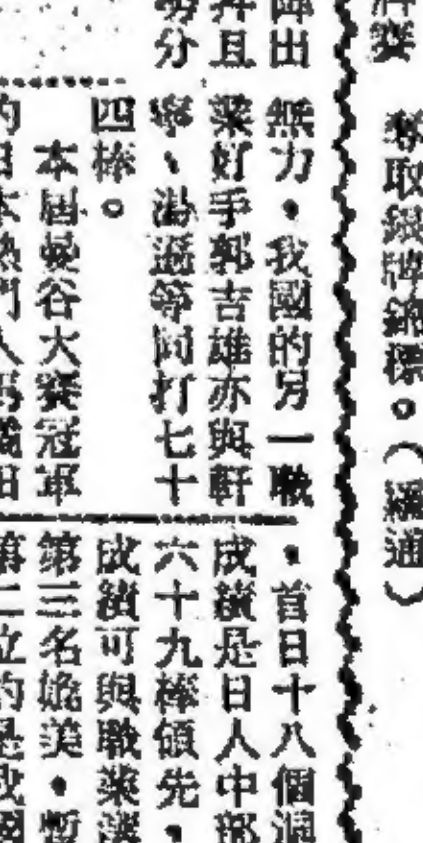 牌賽
奪取銀牌錦標。(編通)
陣出
並且
分
無力,我國的另一職
業好手郭吉雄亦與軒
寧、湯遜等同打七十
四棒。
本屆曼谷大賽冠軍
的日本熱門人
,首日十八個洞
成績是日人中部
六十九棒領先,
成績可與職業選
第三名媲美,暫
第二位的是我國